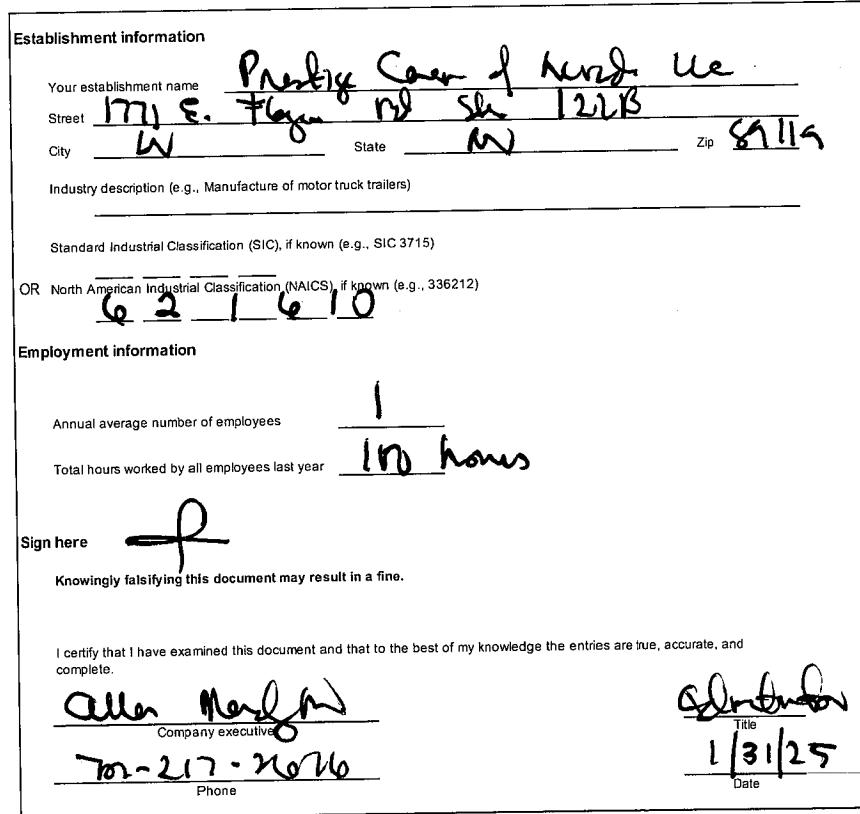 Establishment information
Your establishment name Prestige Care of Nevada LLC
Street 1771 E. Flamingo Rd Ste 122B
City LV State NV Zip 89119
Industry description (e.g., Manufacture of motor truck trailers)
Standard Industrial Classification (SIC), if known (e.g., SIC 3715)
OR North American Industrial Classification (NAICS), if known (e.g., 336212)
6 2 1 6 1 0
Employment information
Annual average number of employees 1
Total hours worked by all employees last year 100 hours
Sign here
Knowingly falsifying this document may result in a fine.
I certify that I have examined this document and that to the best of my knowledge the entries are true, accurate, and
complete.
Allen
Company executive
Administrator
Title
702-217-
Phone
1/31/25
Date